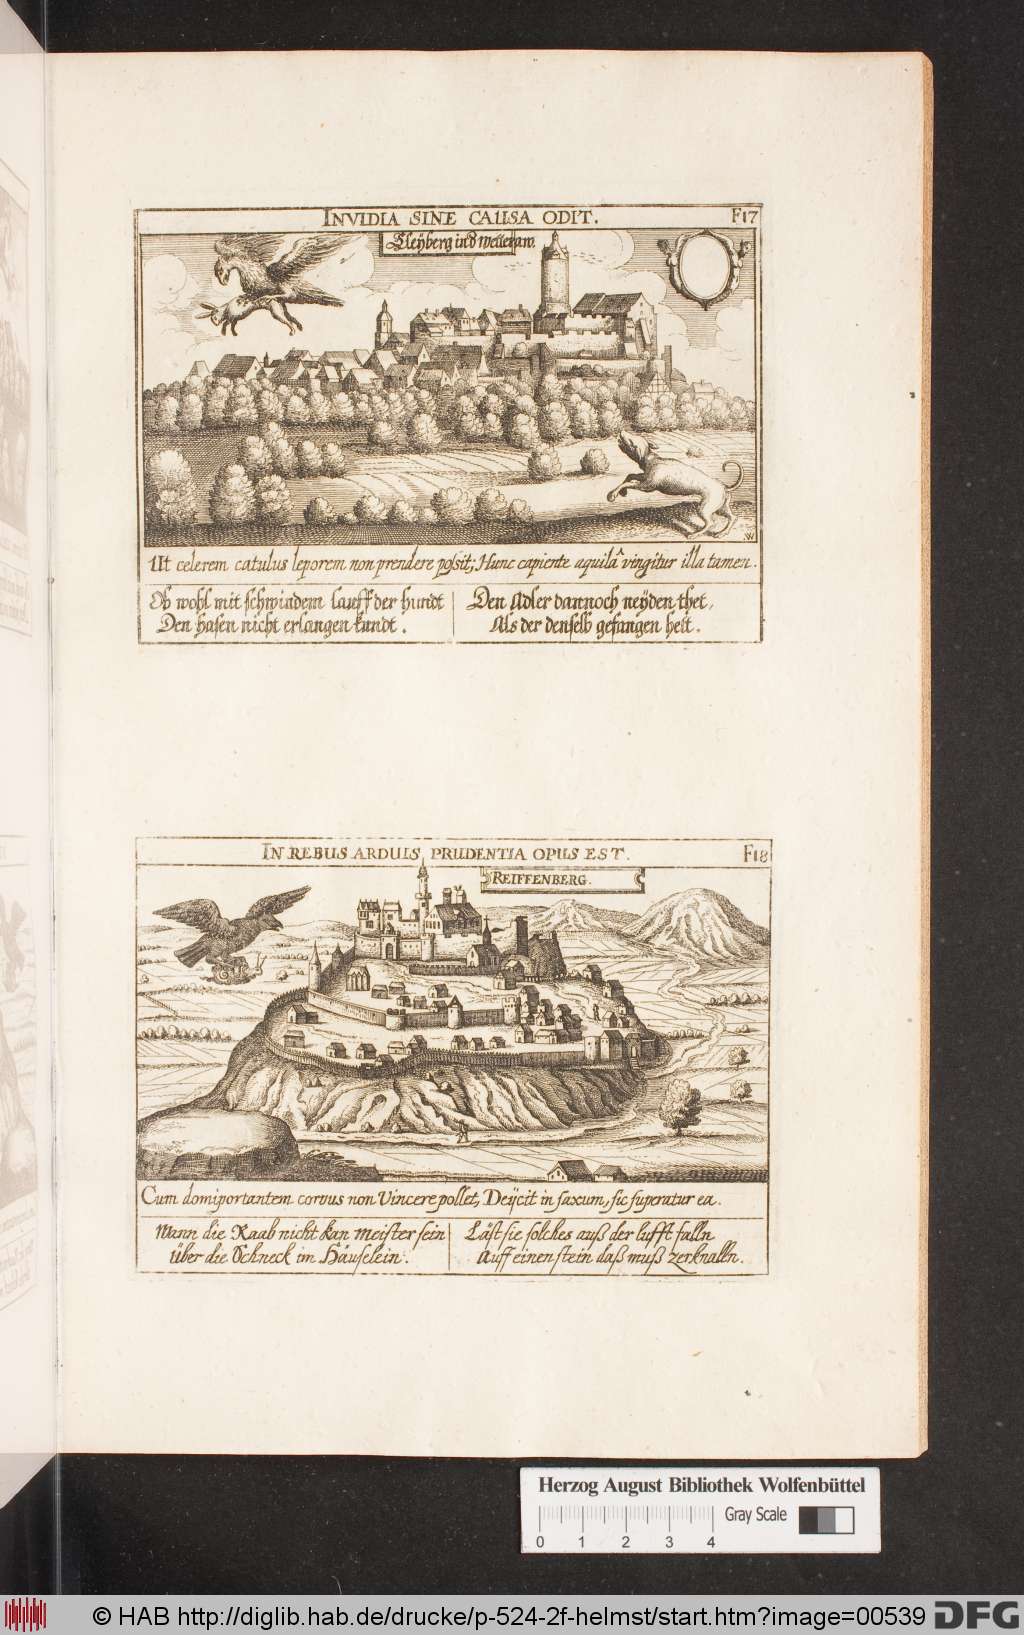 INVIDIA SINE CAUSA ODIT.
F17
Cleÿberg in d wetteraw.
Ut celerem catulus leporem non prendere possit; Hunc capiente aquilâ vingitur illa tamen.
Ob wohl mit schwindem lauff der hundt
Den hasen nicht erlangen kundt.
Den Adler dannoch neÿden thet,
Als der denselb gefangen helt.
IN REBUS ARDUIS PRUDENTIA OPUS EST.
F18
REIFFENBERG.
Cum domiportantem corvus non Vincere pollet, Deÿcit in saxum, sic superatur ea.
Wann die Raab nicht kan meister sein
Über die Schneck im Häuselein.
Läst sie solches auß der lufft falln
Auff einen stein daß muß zerknalln.
Herzog August Bibliothek Wolfenbüttel
Gray Scale
0 1 2 3 4
© HAB http://diglib.hab.de/drucke/p-524-2f-helmst/start.htm?image=00539
DFG